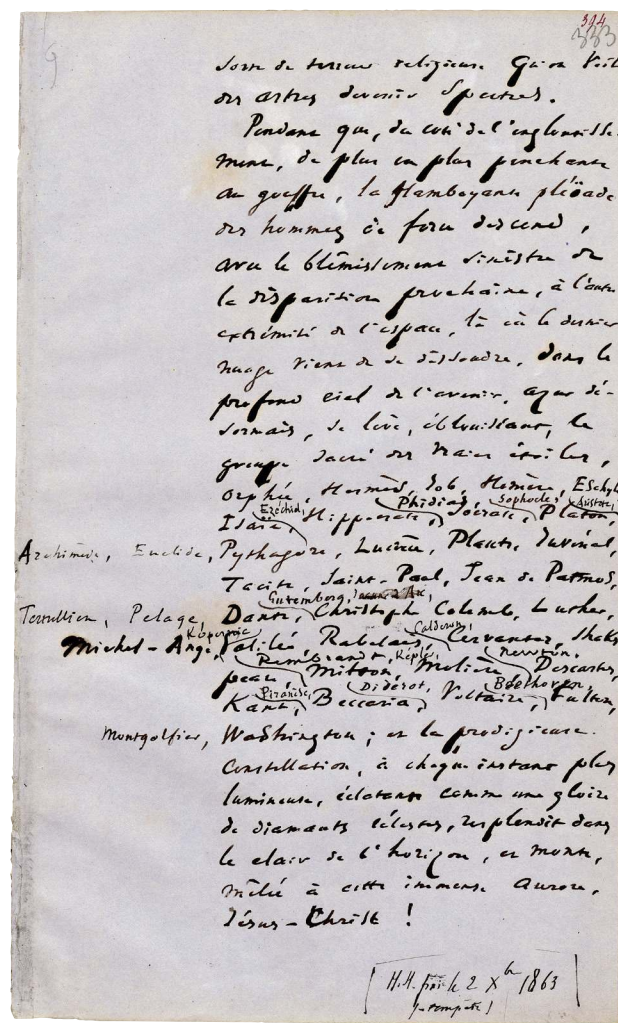 394
333
sorte de terreur religieuse qu'on voit
des astres devenir spectres.
Pendant que, du côté de l'engloutisse-
ment, de plus en plus penchante
au gouffre, la flamboyante pléiade
des hommes de force descend,
avec le blêmissement sinistre de
la disparition prochaine, à l'autre
extrémité de l'espace, là où le dernier
nuage vient de se dissoudre, dans le
profond ciel de l'avenir, azur dé-
sormais, se lève, éblouissant, le
groupe sacré des vraies étoiles,
Orphée, Hermès, Job, Homère, Eschyle
Ezéchiel, Phidias, Sophocle, Aristote,
Isaïe, Hippocrate, Socrate, Platon,
Archimède, Euclide, Pythagore, Lucrèce, Plaute, Juvénal,
Tacite, Saint-Paul, Jean de Patmos,
Gutemberg, Jeanne d'Arc,
Tertullien, Pelage, Dante, Christoph Colomb, Luther,
Kopernic Calderon,
Michel-Ange, Galilée Rabelais, Cervantes, Shaks
Rembrandt, Képler, newton,
peare Milton, Molière, Descartes,
Piranèse, Didérot, Beethoven,
Kant, Beccaria, Voltaire, Fulton,
Montgolfier, Washington ; et la prodigieuse
constellation, à chaque instant plus
lumineuse, éclatante comme une gloire
de diamants célestes, resplendit dans
le clair de l'horizon, et monte,
mêlée à cette immense aurore,
Jésus-Christ !
H.H. 2 Xbre 1863
(tempête)